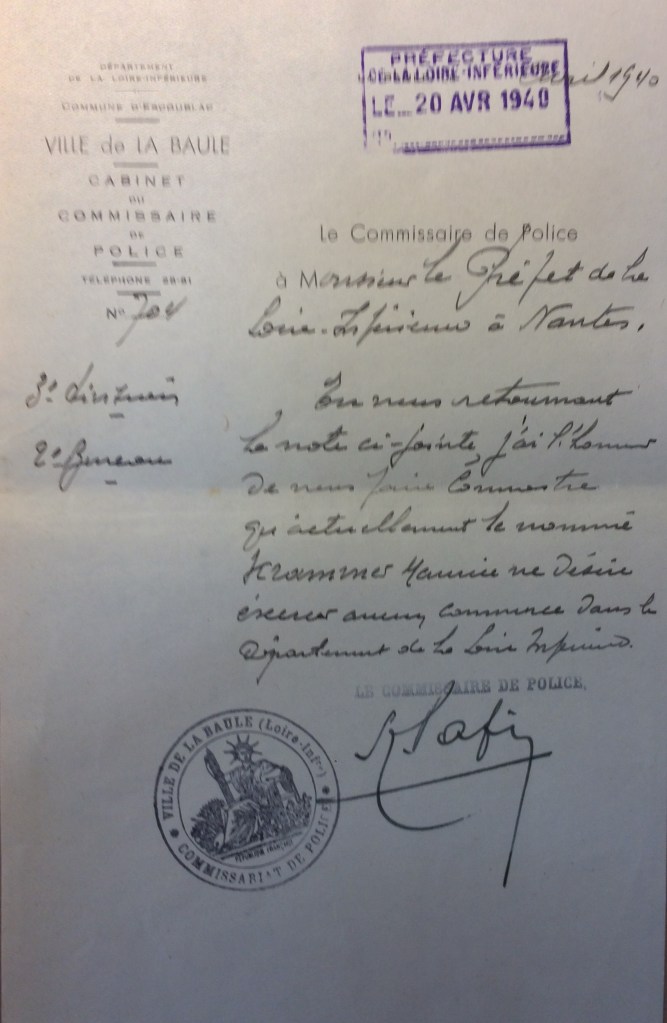 DÉPARTEMENT
DE LA LOIRE-INFÉRIEURE
COMMUNE D'ESCOUBLAC
VILLE de LA BAULE
CABINET
DU
COMMISSAIRE
DE
POLICE
TÉLÉPHONE 68-81
N° 704
PRÉFECTURE
DE LA LOIRE-INFÉRIEURE
LE 20 AVR 1940
avril 1940
Le Commissaire de Police
à Monsieur le Préfet de la
Loire-Inférieure à Nantes.
3e Division
2e Bureau
En vous retournant
la note ci-jointe, j'ai l'honneur
de vous faire connaître
qu'actuellement le nommé
Krammer Maurice ne désire
exercer aucun commerce dans le
Département de la Loire Inférieure.
LE COMMISSAIRE DE POLICE,
VILLE DE LA BAULE (Loire-Infre)
COMMISSARIAT DE POLICE